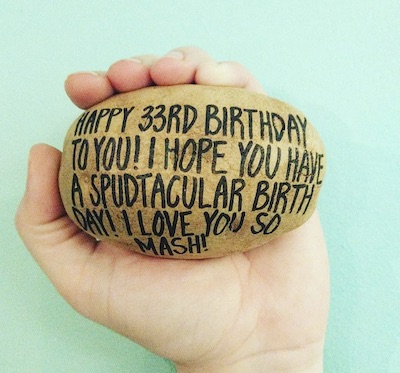 HAPPY 33RD BIRTHDAY
TO YOU! I HOPE YOU HAVE
A SPUDTACULAR BIRTH
DAY! I LOVE YOU SO
MASH!